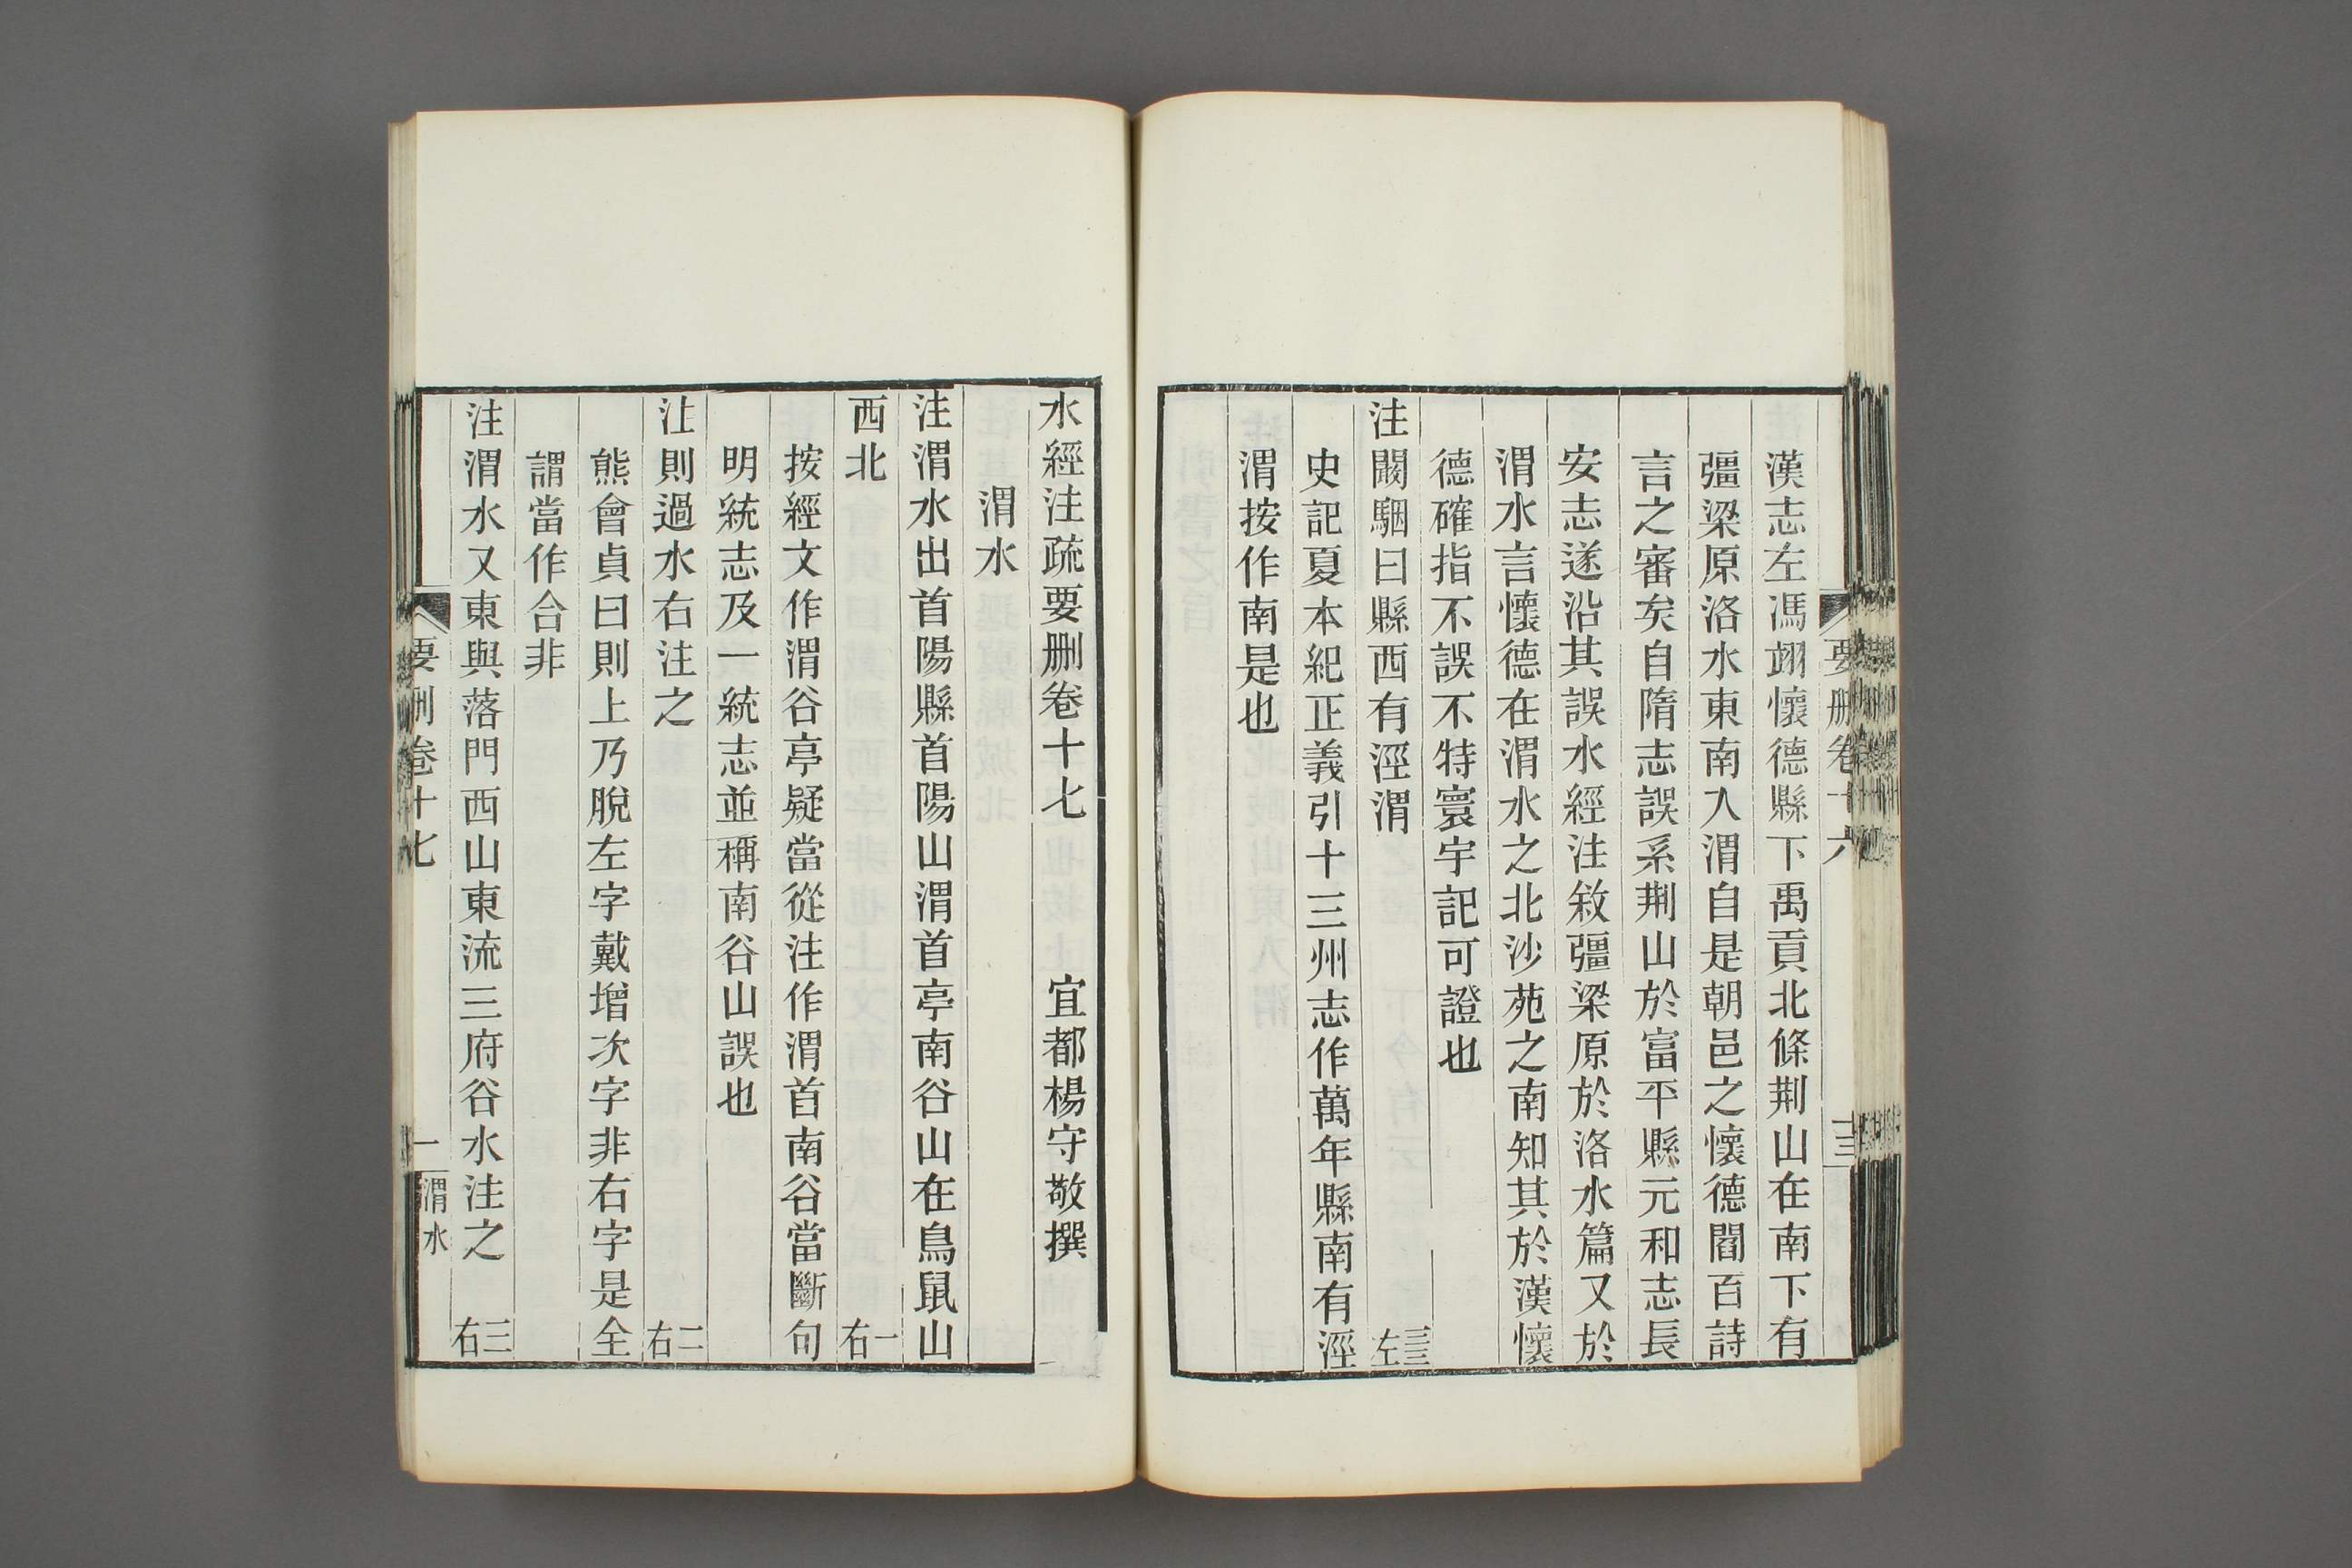 漢志左馮翊懷德縣下禹貢北條荆山在南下有
彊梁原洛水東南入渭自是朝邑之懷德閻百詩
言之審矣自隋志誤系荆山於富平縣元和志長
安志遂沿其誤水經注敘彊梁原於洛水篇又於
渭水言懷德在渭水之北沙苑之南知其於漢懷
德確指不誤不特寰宇記可證也
注闞駰曰縣西有涇渭 三三左
史記夏本紀正義引十三州志作萬年縣南有涇
渭按作南是也
要刪卷十六
水經注疏要刪卷十七 宜都楊守敬撰
渭水
注渭水出首陽縣首陽山渭首亭南谷山在鳥鼠山
西北 一右
按經文作渭谷亭疑當從注作渭首南谷當斷句
明統志及一統志並稱南谷山誤也
注則過水右注之 二右
熊會貞曰則上乃脫左字戴增次字非右字是全
謂當作合非
注渭水又東與落門西山東流三府谷水注之 三右
要刪卷十七 一 渭水